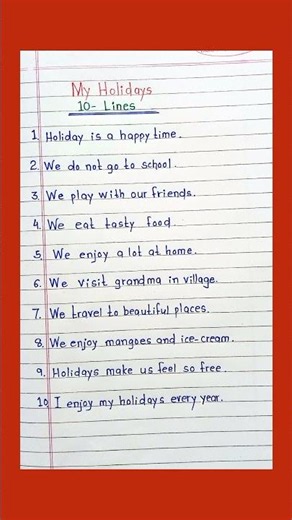 My Holidays
10- Lines
1. Holiday is a happy time.
2. We do not go to school.
3. We play with our friends.
4. We eat tasty food.
5. We enjoy a lot at home.
6. We visit grandma in village.
7. We travel to beautiful places.
8. We enjoy mangoes and ice-cream.
9. Holidays make us feel so free.
10. I enjoy my holidays every year.